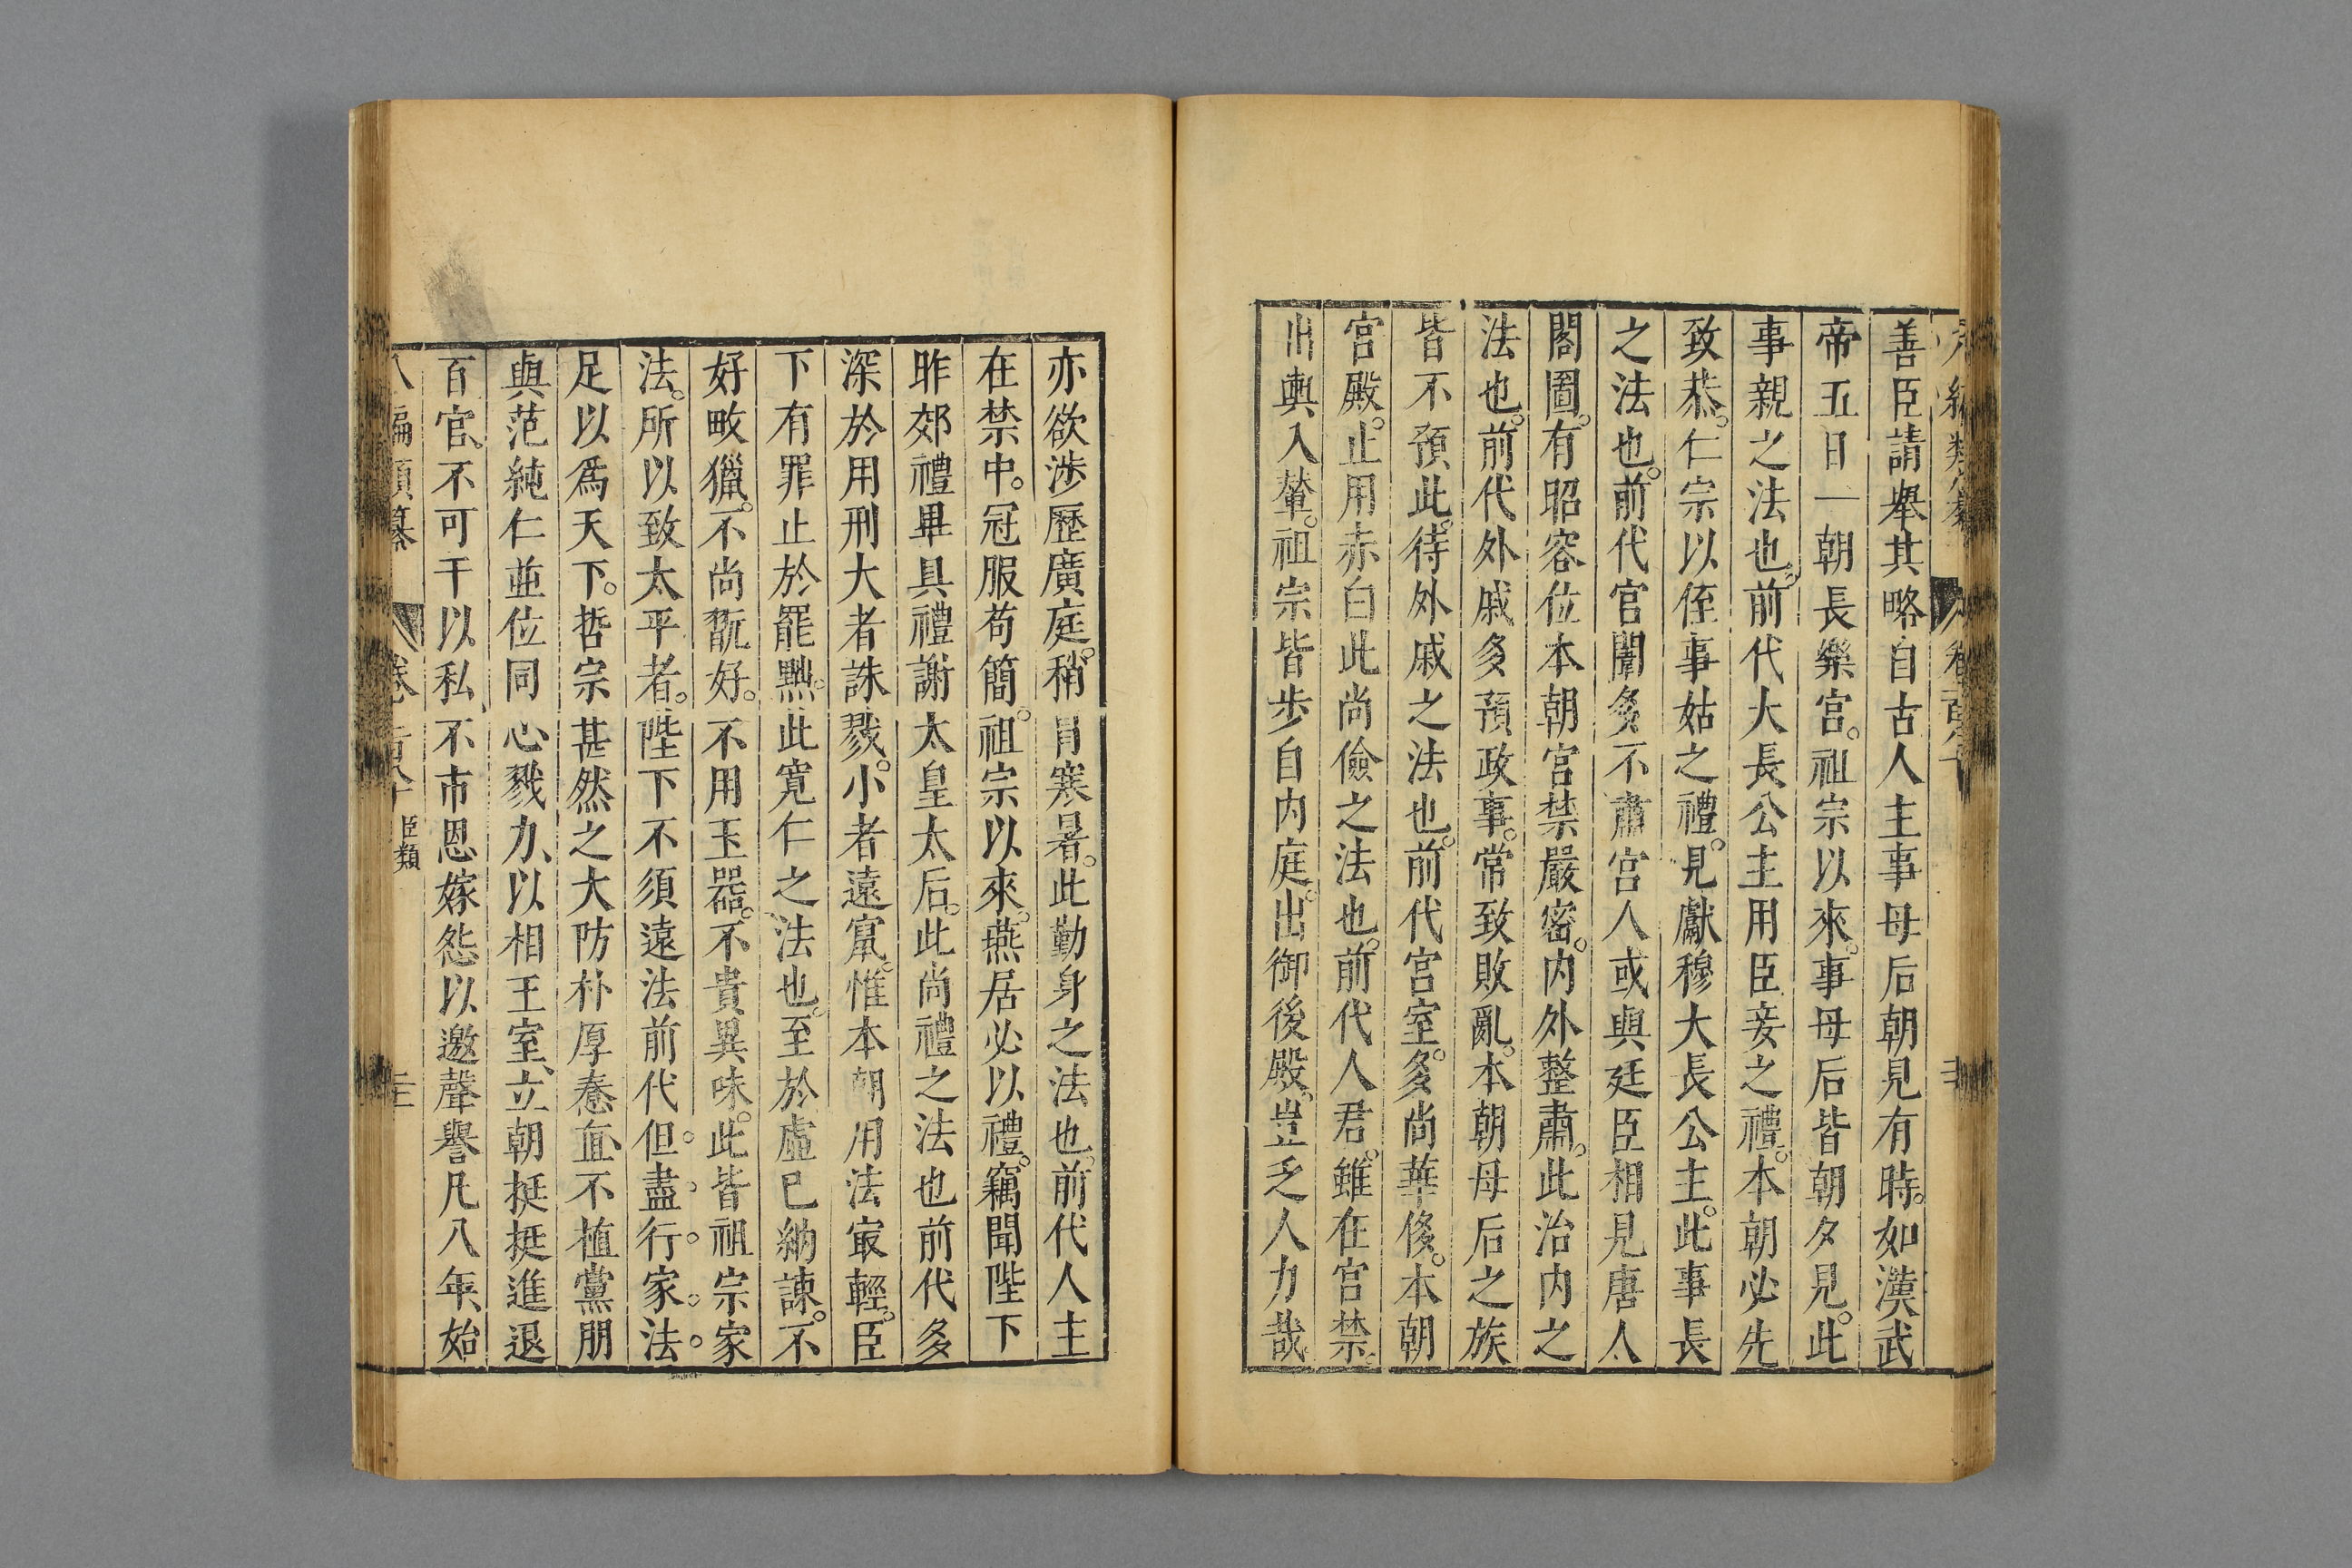 善臣請舉其略自古人主事母后朝見有時。如漢武
帝五日一朝長樂宮。祖宗以來。事母后皆朝夕見。此
事親之法也。前代大長公主用臣妾之禮。本朝必先
致恭。仁宗以侄事姑之禮。見獻穆大長公主。此事長
之法也。前代宮闈多不肅宮人或與廷臣相見唐入
閣圖。有昭容位本朝宮禁嚴密。内外整肅。此治内之
法也。前代外戚多預政事。常致敗亂。本朝母后之族
皆不預此。待外戚之法也。前代宮室。多尚華侈。本朝
宮殿。止用赤白此尚儉之法也。前代人君。雖在宮禁。
出輿入輦。祖宗皆步自内庭。出御後殿。豈乏人力哉
亦欲涉歷廣庭。稍冐寒暑。此勤身之法也。前代人主
在禁中。冠服苟簡。祖宗以來。燕居必以禮。竊聞陛下
昨郊禮畢具禮謝太皇太后。此尚禮之法也前代多
深於用刑大者誅戮。小者遠竄。惟本朝用法冣輕。臣
下有罪止於罷黜。此寬仁之法也。至於虛已納諫。不
好畋獵。不尚翫好。不用玉器。不貴異味。此皆祖宗家
法。所以致太平者。陛下不須遠法前代。但。盡。行。家。法。
足以爲天下。哲宗甚然之大防朴厚惷直、不植黨朋
與范純仁並位同心戮力、以相王室、立朝挺挺進退
百官。不可干以私、不市恩嫁怨以邀聲譽凡八年、始
八編類纂 卷一百八十 臣類